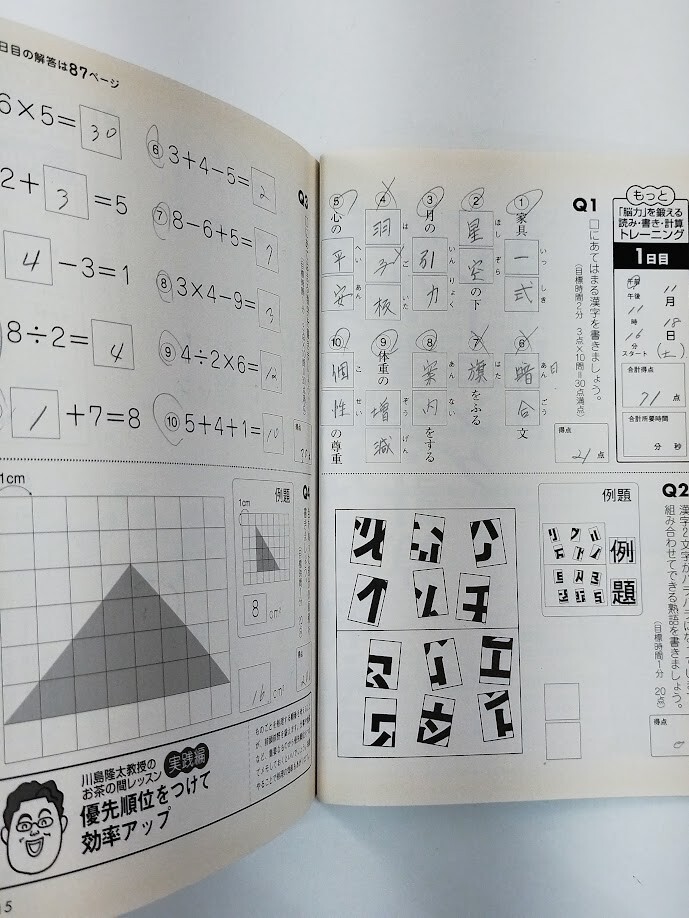 もっと
「脳力」を鍛える
読み・書き・計算
トレーニング
1日目
午前
午後
11月
18日
(土)
11時
16分
スタート
合計得点
71点
合計所要時間
分 秒
Q1
□にあてはまる漢字を書きましょう。
(目標時間2分 3点×10問=30点満点)
得点
21点
① 家具一式 いっしき
② 星空の下 ほしぞら
③ 月の引力 いんりょく
④ 羽子板 はごいた
⑤ 心の平安 へいあん
⑥ 暗合文 あんごう
⑦ 旗をふる はた
⑧ 案内をする あんない
⑨ 体重の増減 ぞうげん
⑩ 個性の尊重 こせい
Q2
組み合わせてできる熟語を書きましょう。
(目標時間1分 20点)
例題
例
題
得点
0
日目の解答は87ページ
Q3
6×5=30
2+3=5
4−3=1
8÷2=4
1+7=8
⑥ 3+4−5=2
⑦ 8−6+5=7
⑧ 3×4−9=3
⑨ 4÷2×6=12
⑩ 5+4+1=10
得点
Q4
例題
1cm
8cm²
1cm
16cm²
得点
川島隆太教授の
お茶の間レッスン
実践編
優先順位をつけて
効率アップ
5